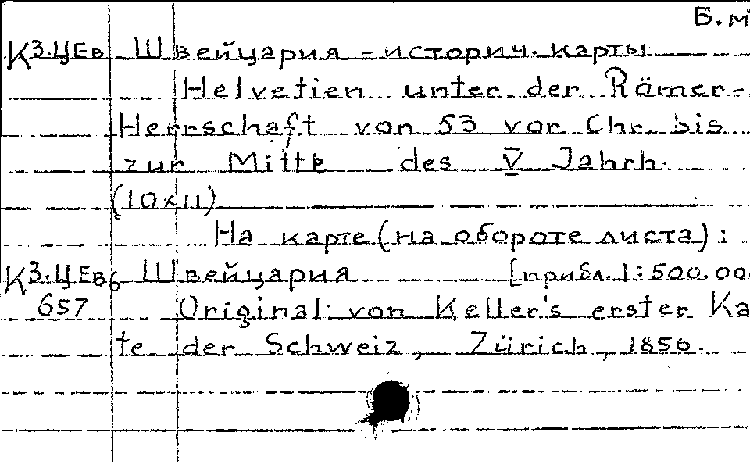 Б.м
К3.ЦЕв Швейцария - историч. карты
Helvetien unter der Rämer-
Herrschaft von 53 vor Chr. bis
zur Mitte des V Jahrh.
(10×11)
На карте (на обороте листа):
К3.ЦЕв6 Швейцария [прибл. 1:500.00
657 Original von Keller's erster Ka
te der Schweiz, Zürich, 1856.